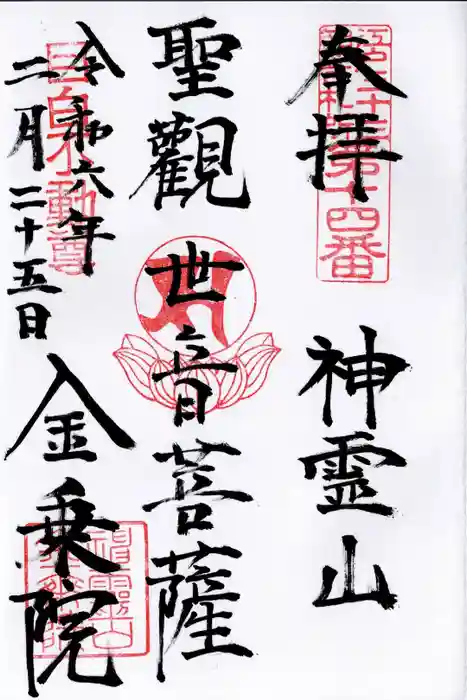 奉拝
神霊山
聖觀世音菩薩
令和六年
二月二十五日
金乗院
第十四番
目白不動尊